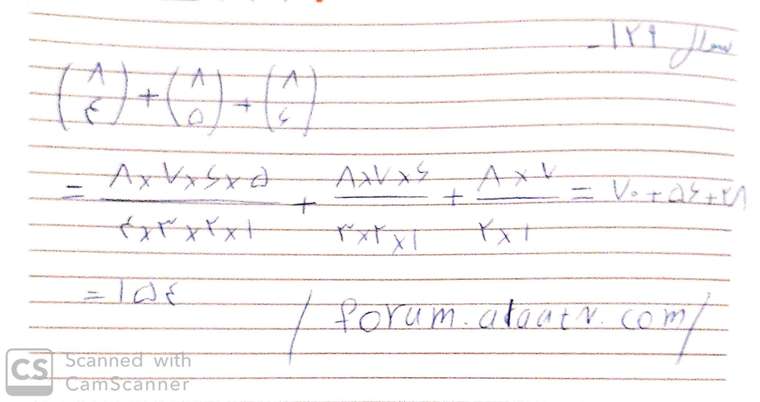 سوال ۱۲۹ -
(۸ ۴) + (۸ ۵) + (۸ ۶)
= ۸×۷×۶×۵ / ۴×۳×۲×۱ + ۸×۷×۶ / ۳×۲×۱ + ۸×۷ / ۲×۱ = ۷۰+۵۶+۲۸
= ۱۵۴
/ forum.alaatv.com/
CS Scanned with
CamScanner